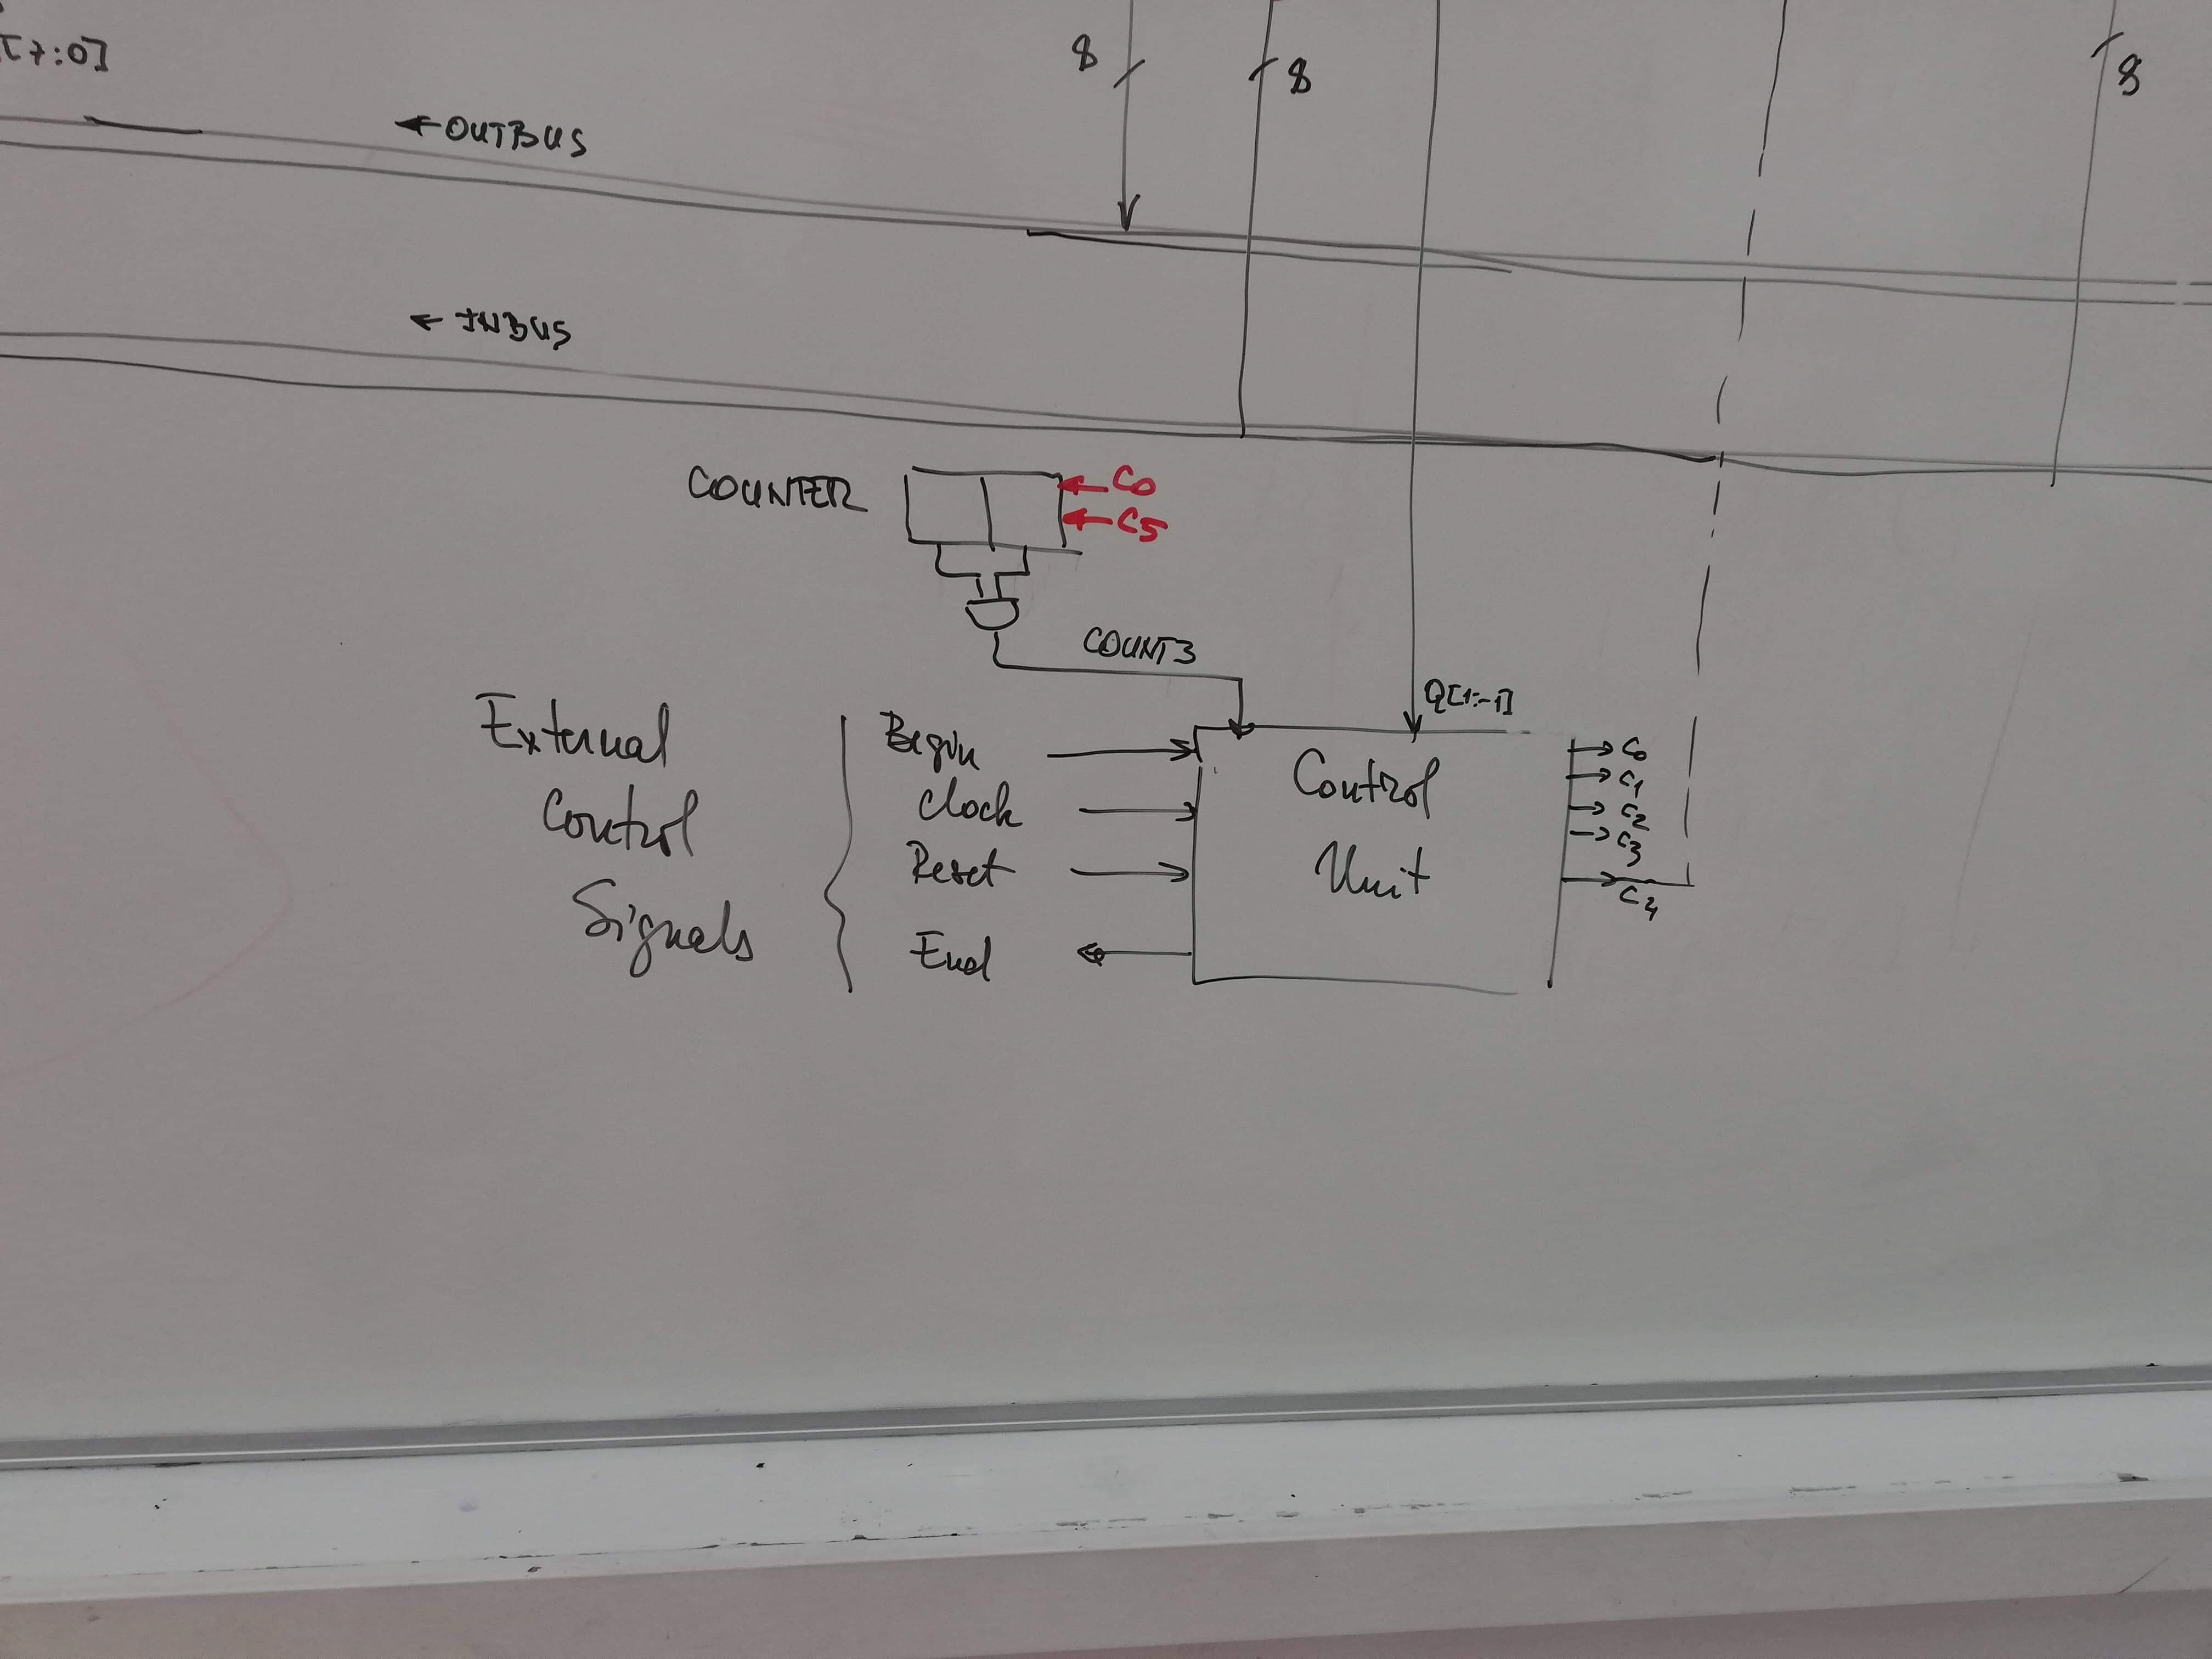 [7:0]
8
8
8
←OUTBUS
← INBUS
COUNTER
C0
C5
COUNT3
Q[1:-1]
External
Control
Signals
Begin
Clock
Reset
End
Control
Unit
C0
C1
C2
C3
C4